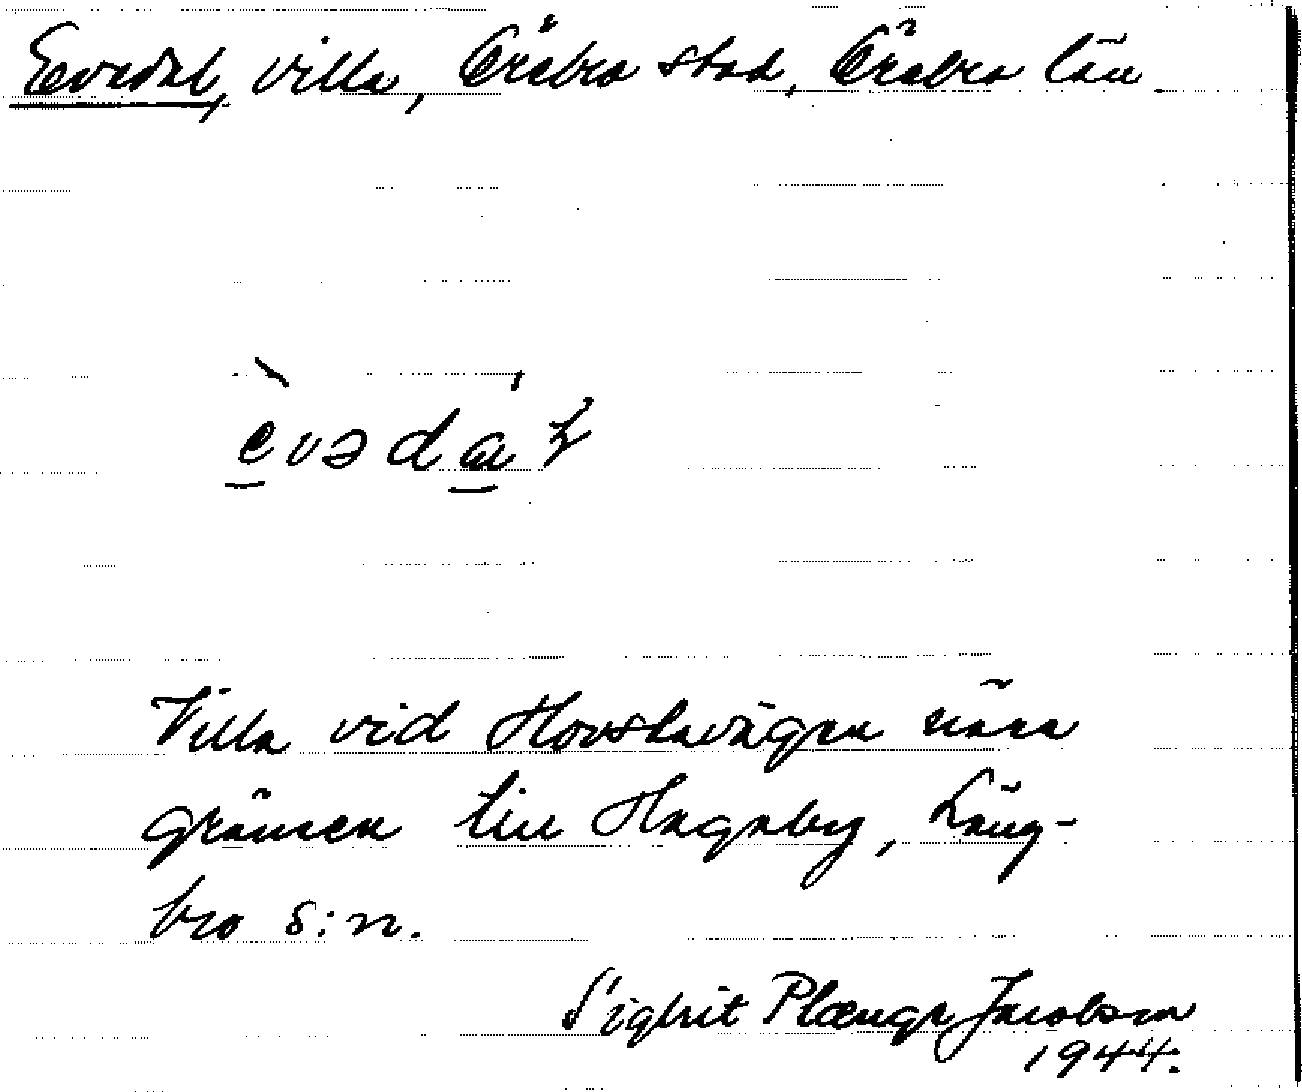 Evedal, villa, Örebro stad, Örebro län.
èvədá
Villa vid Hovstavägen nära
gränsen till Hagaby, Läng-
bro s:n.
Sigbrit Plænge Jacobson
1944.